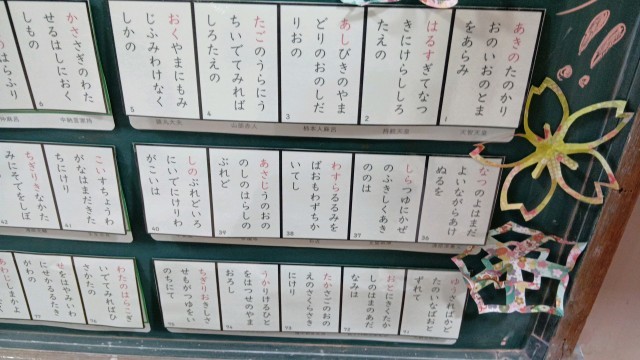 あきのたのかり
おのいおのとま
をあらみ
1
天智天皇
はるすぎてなつ
きにけらししろ
たえの
2
持統天皇
あしびきのやま
どりのおのしだ
りおの
3
柿本人麻呂
たごのうらにう
ちいでてみれば
しろたえの
4
山部赤人
おくやまにもみ
じふみわけなく
しかの
5
猿丸大夫
かささぎのわた
せるはしにおく
しもの
6
中納言家持
なつのよはまだ
よいながらあけ
ぬるを
36
しらつゆにかぜ
のふきしくあき
ののは
37
わすらるるみを
ばおもわずちか
いてし
38
あさじうのおの
のしのはらしの
ぶれど
39
しのぶれどいろ
にいでにけりわ
がこいは
40
こいすちょうわ
がなはまだきた
ちにけり
41
ちぎりきなかた
みにそでをしぼ
42
ゆうさればかど
たのいなばおと
ずれて
71
おとにきくたか
しのはまのあだ
なみは
72
たかさごのおの
えのさくらさき
にけり
73
うかりけるひと
をはつせのやま
おろし
74
ちぎりおきしさ
せもがつゆをい
のちにて
75
わたのはらこぎ
いでてみればひ
さかたの
76
せをはやみいわ
にせかるるたき
がわの
77